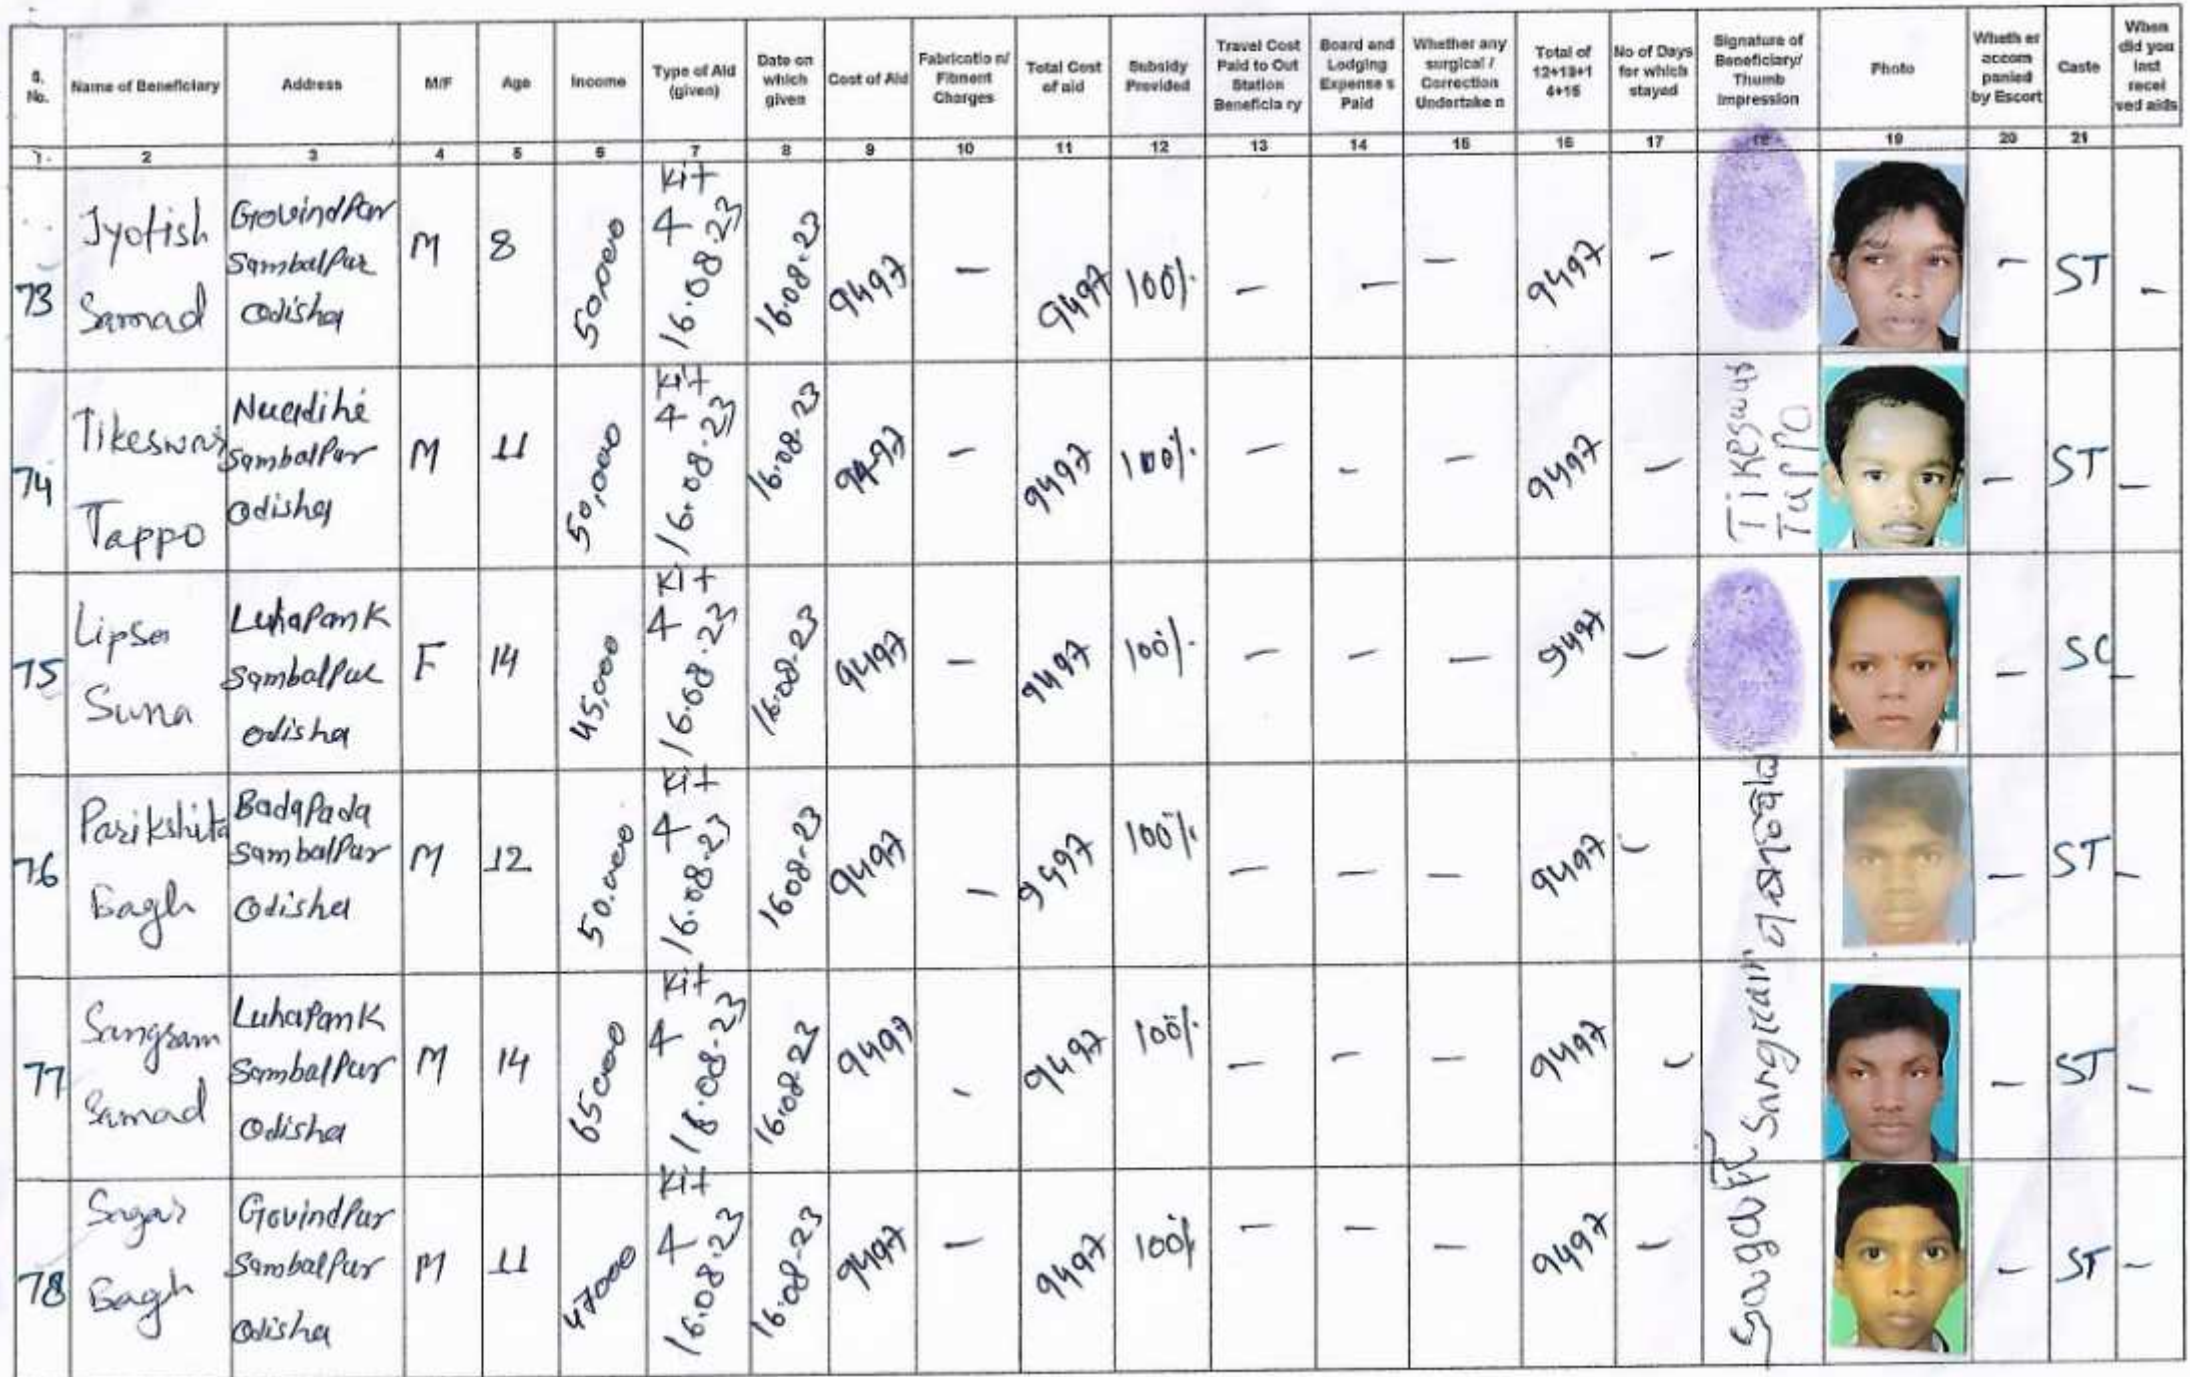 S. No. Name of Beneficiary Address M/F Age Income Type of Aid (given) Date on which given Cost of Aid Fabricatio n/ Fitment Charges Total Cost of aid Subsidy Provided Travel Cost Paid to Out Station Beneficia ry Board and Lodging Expense s Paid Whether any surgical / Correction Undertake n Total of 12+13+1 4+15 No of Days for which stayed Signature of Beneficiary/ Thumb Impression Photo Wheth er accom panied by Escort Caste When did you last recei ved aids
1. 2 3 4 5 6 7 8 9 10 11 12 13 14 15 16 17 18 19 20 21
73 Jyotish Samad Govindpur Sambalpur Odisha M 8 50,000 Kit 4 16.08.23 16.08.23 9497 – 9497 100% – – – 9497 – – ST –
74 Tikeswar Tappo Sambalpur Odisha M 11 50,000 Kit 4 16.08.23 16.08.23 9497 – 9497 100% – – – 9497 – – ST –
75 Lipsa Suna Luhapank Sambalpur Odisha F 14 45,000 Kit 4 16.08.23 16.08.23 9497 – 9497 100% – – – 9497 – – SC –
76 Parikshita Bagh Badapada Sambalpur Odisha M 12 50.000 Kit 4 16.08.23 16.08.23 9497 – 9497 100% – – – 9497 – – ST –
77 Sangram Samad Luhapank Sambalpur Odisha M 14 65000 Kit 4 16.08.23 9497 - 9497 100% – – – 9497 – Sangram – ST –
78 Sagar Bagh Govindpur Sambalpur Odisha M 11 47000 Kit 4 16.08.23 16.08.23 9497 – 9497 100% – – – 9497 – – ST –